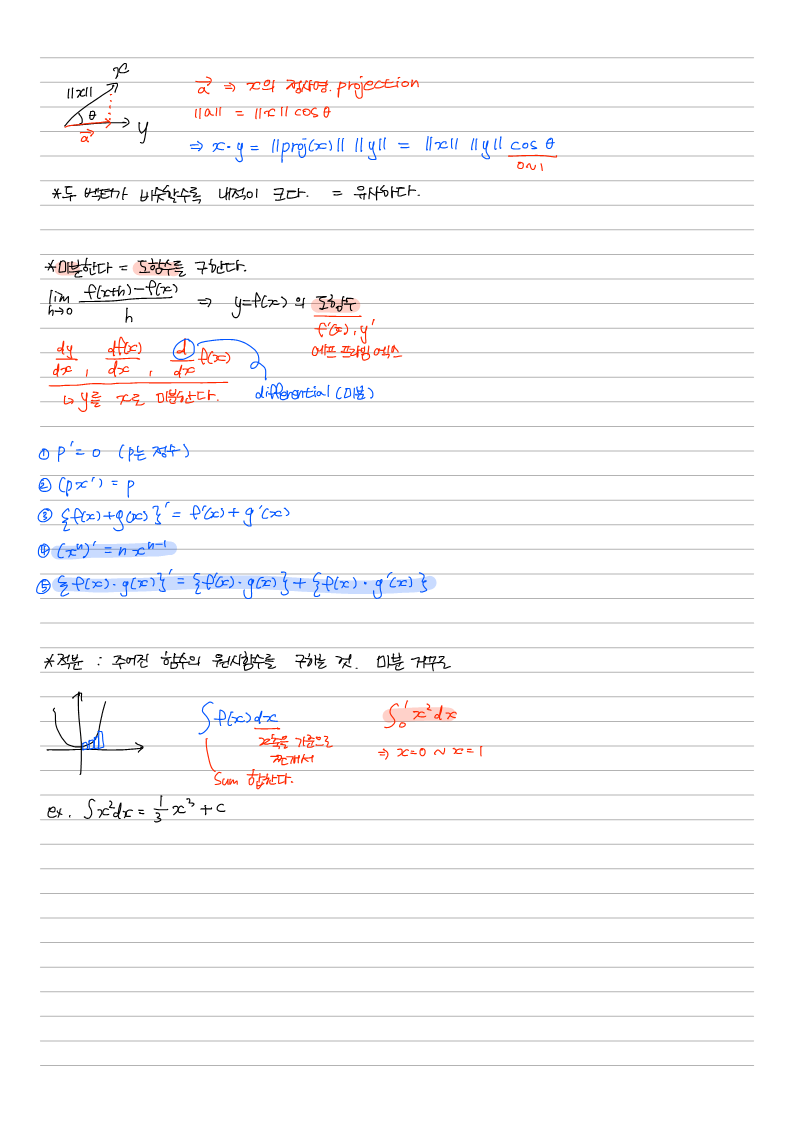 x
||x||
θ
a
y
a ⇒ x의 정사영. projection
||a|| = ||x|| cos θ
⇒ x·y = ||proj(x)|| ||y|| = ||x|| ||y|| cos θ
0~1
*두 벡터가 비슷할수록 내적이 크다. = 유사하다.
*미분한다 = 도함수를 구한다.
lim h→0 f(x+h)-f(x) / h ⇒ y=f(x) 의 도함수
f'(x), y'
에프 프라임 엑스
dy/dx , df(x)/dx , d/dx f(x)
↳ y를 x로 미분한다.
differential (미분)
① p' = 0 (p는 정수)
② (px') = p
③ {f(x)+g(x)}' = f'(x) + g'(x)
④ (xⁿ)' = n xⁿ⁻¹
⑤ {f(x)·g(x)}' = {f'(x)·g(x)} + {f(x)·g'(x)}
*적분 : 주어진 함수의 원시함수를 구하는 것. 미분 거꾸로
∫f(x)dx
x축을 기준으로
쪼개서
Sum 합한다.
∫₀¹ x²dx
⇒ x=0 ~ x=1
ex. ∫x²dx = 1/3 x³ + C